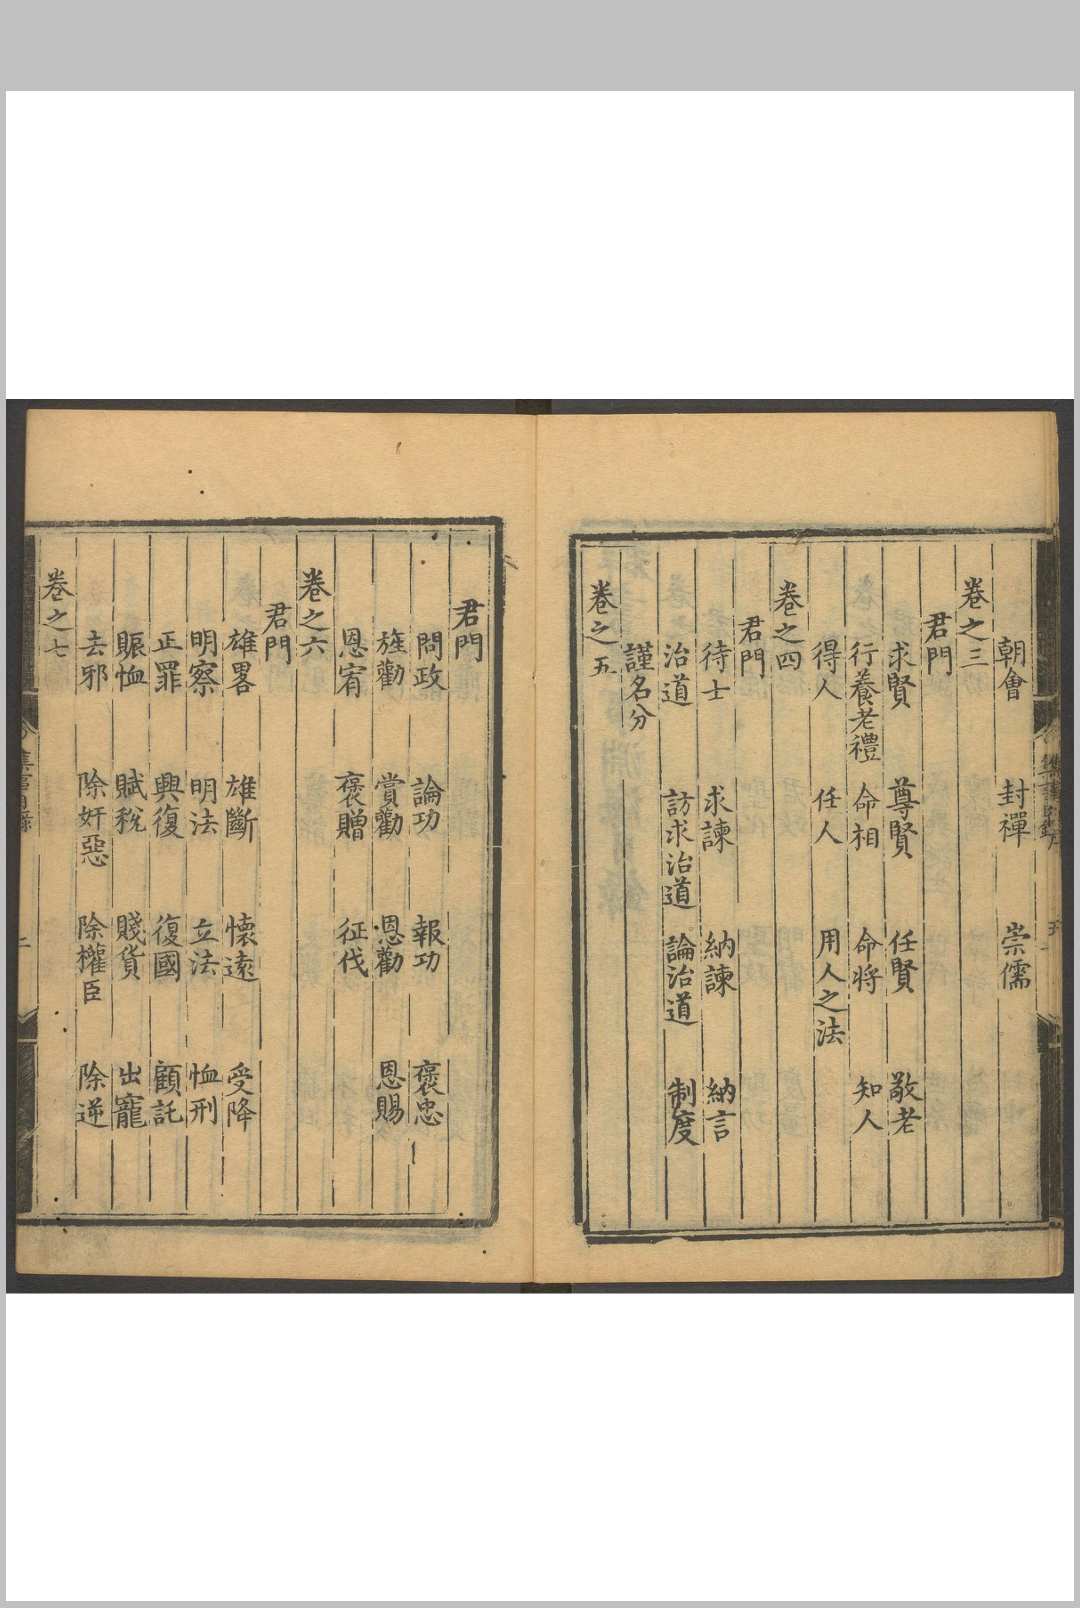 朝會 封禪 崇儒
卷之三
君門
求賢 尊賢 任賢 敬老
行養老禮 命相 命將 知人
得人 任人 用人之法
卷之四
君門
待士 求諫 納諫 納言
治道 訪求治道 論治道 制度
謹名分
卷之五
君門
問政 論功 報功 褒忠
旌勸 賞勸 恩勸 恩賜
恩宥 褒贈 征伐
卷之六
君門
雄畧 雄斷 懷遠 受降
明察 明法 立法 恤刑
正罪 興復 復國 顧託
賑恤 賦稅 賤貨 出寵
去邪 除奸惡 除權臣 除逆
卷之七